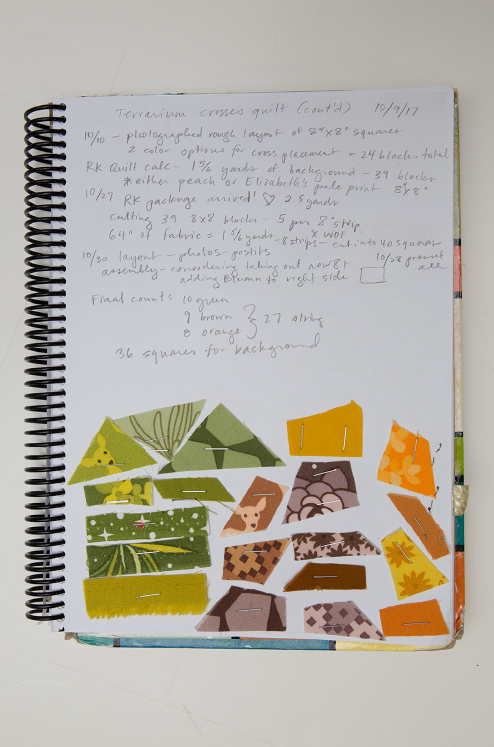 Terrarium crosses quilt (cont'd) 10/9/17
10/10 - photographed rough layout of 8"x8" squares
2 color options for cross placement - 24 blocks total
RK Quilt calc - 1 5/8 yards of background - 39 blocks
*either peach or Elizabeth's pale print 8"x8"
10/27 RK package arrived! ♡ 2.5 yards
cutting 39 8x8 blocks - 5 per 8" strip
x WOF
64" of fabric = 1 5/8 yards - 8 strips - cut into 40 squares
10/30 layout - photos - postits 10/28 pressed
all
assembly - considering taking out row 8 +
adding column to right side
Final count: 10 green
9 brown } 27 string
8 orange
36 squares for background